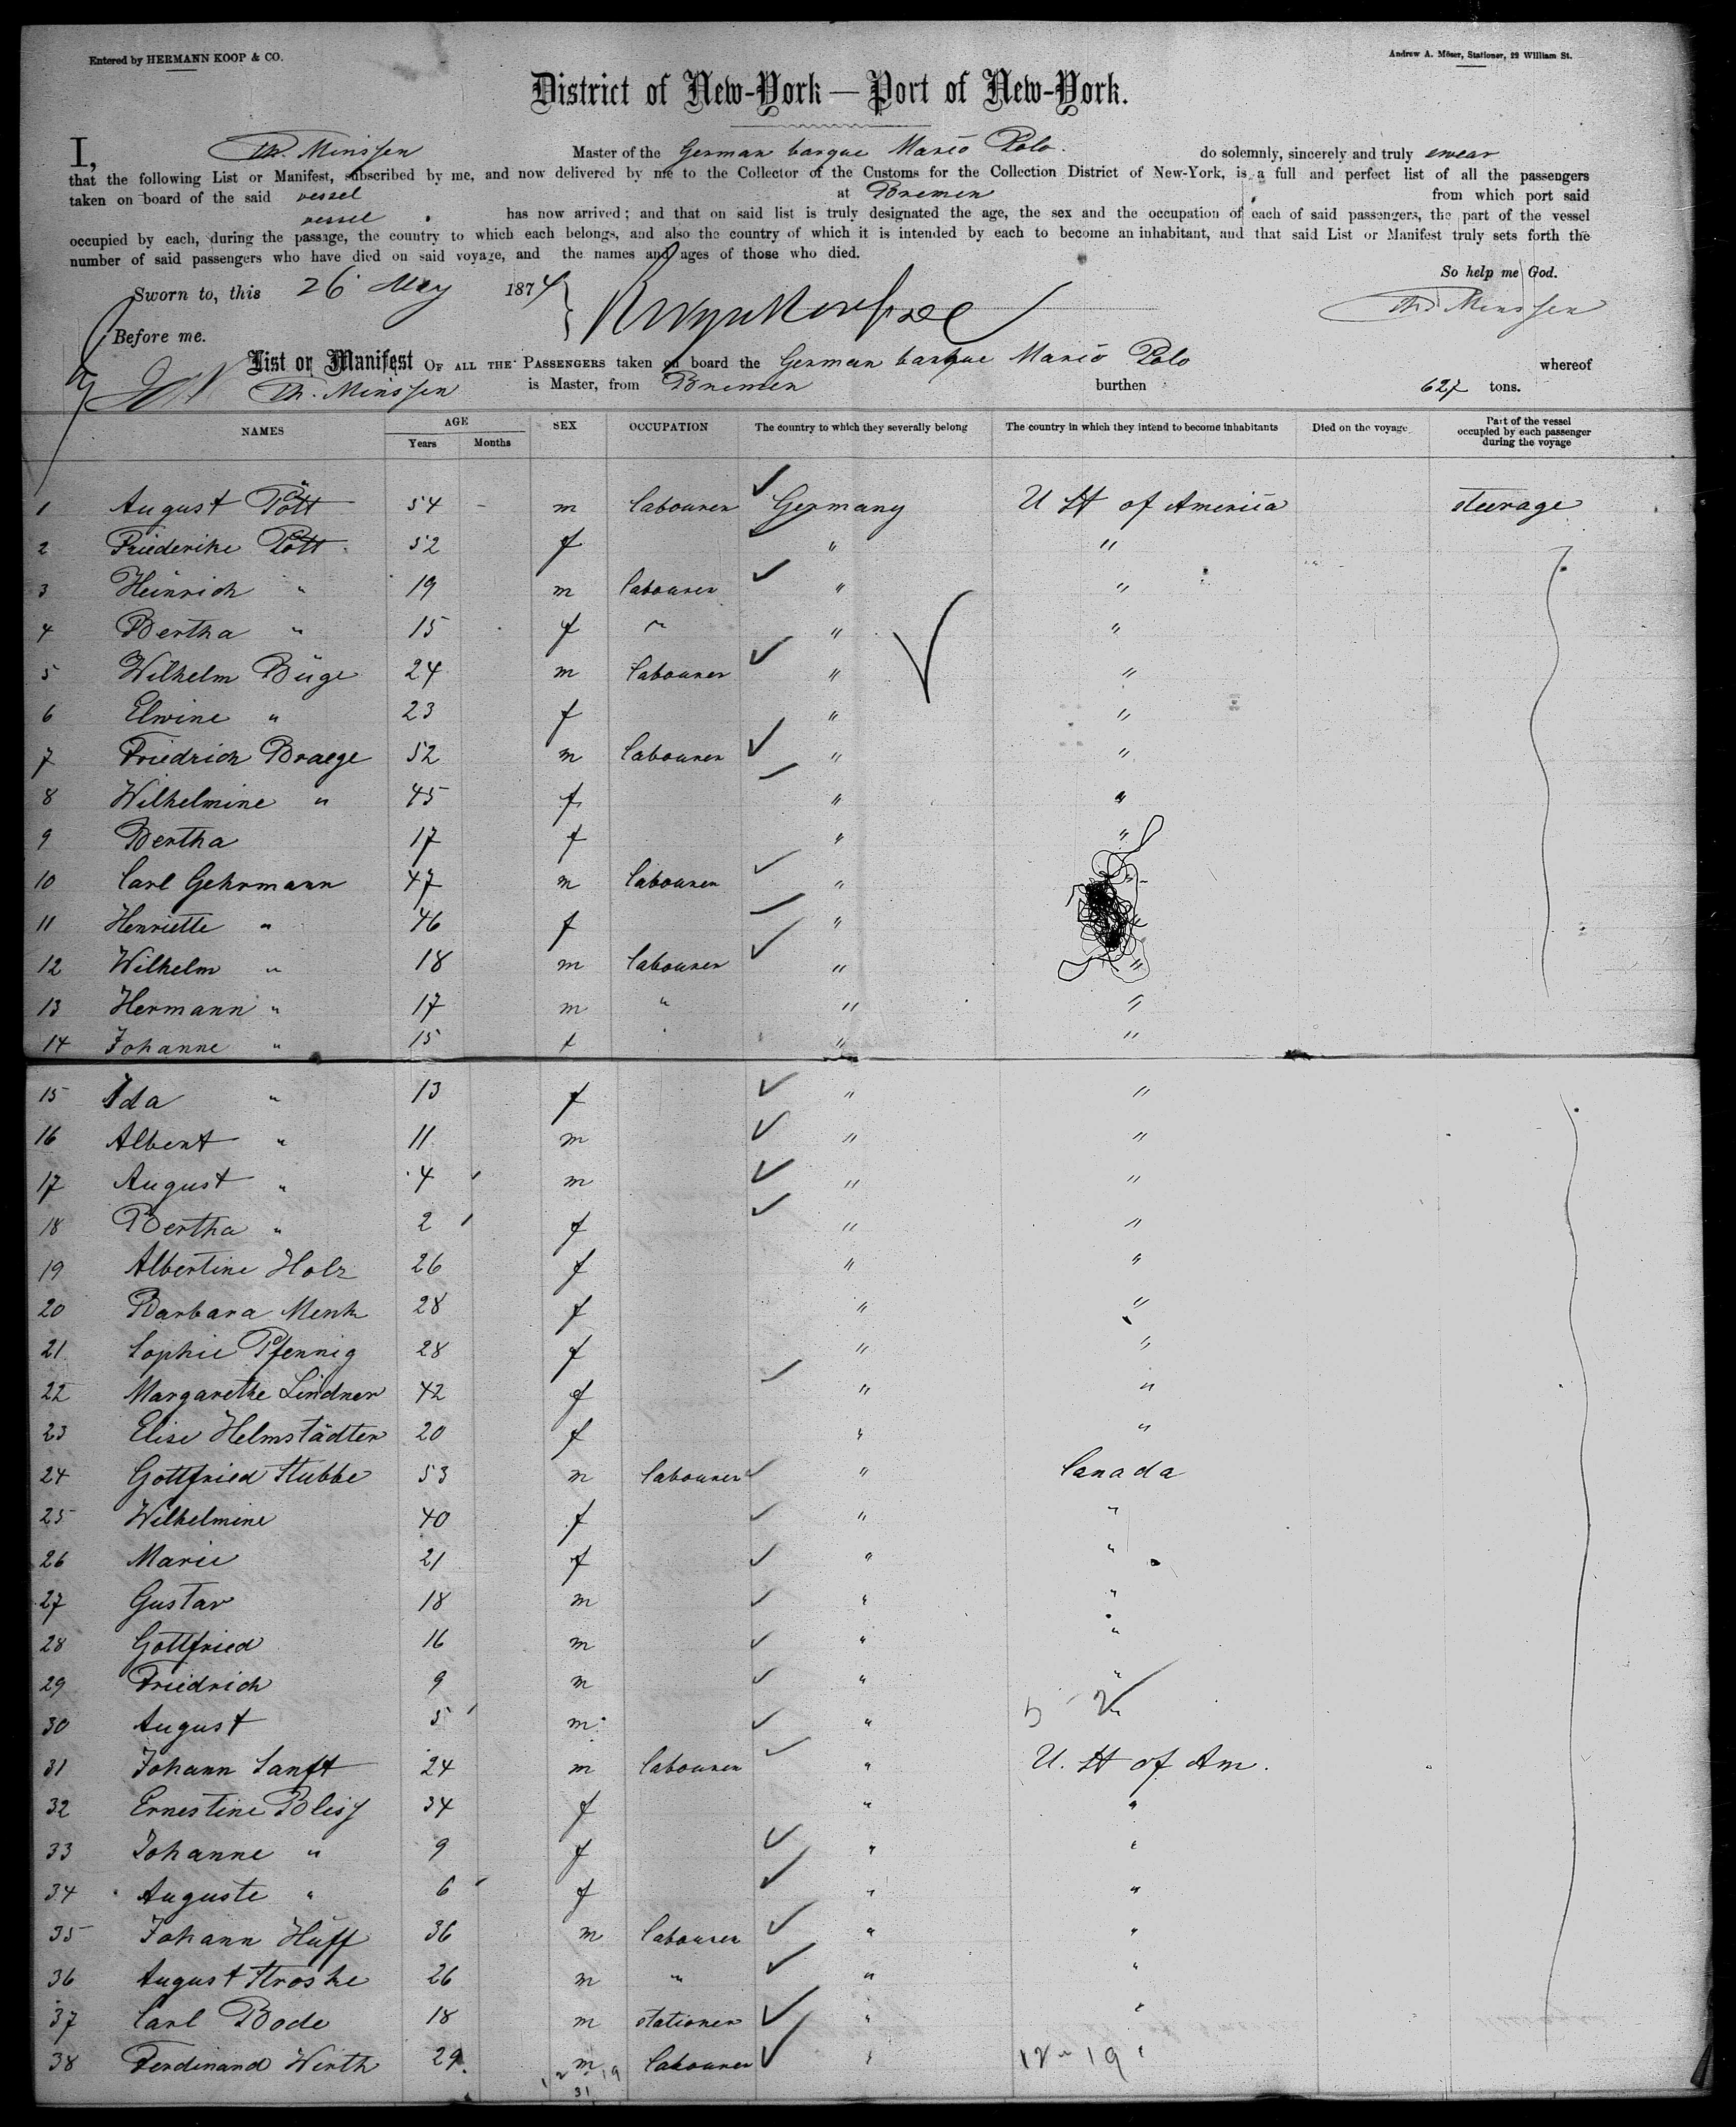 Entered by HERMANN KOOP & CO.
Andrew A. Möser, Stationer, 29 William St.
District of New-York — Port of New-York.
I, Th. Minssen Master of the German barque Marco Polo do solemnly, sincerely and truly swear
that the following List or Manifest, subscribed by me, and now delivered by me to the Collector of the Customs for the Collection District of New-York, is a full and perfect list of all the passengers
taken on board of the said vessel at Bremen from which port said
vessel has now arrived; and that on said list is truly designated the age, the sex and the occupation of each of said passengers, the part of the vessel
occupied by each, during the passage, the country to which each belongs, and also the country of which it is intended by each to become an inhabitant, and that said List or Manifest truly sets forth the
number of said passengers who have died on said voyage, and the names and ages of those who died.
So help me God.
Sworn to, this 26 May 1874
Th. Minssen
Before me.
List or Manifest OF ALL THE PASSENGERS taken on board the German barque Marco Polo whereof
Th. Minssen is Master, from Bremen burthen 627 tons.
NAMES AGE Years Months SEX OCCUPATION The country to which they severally belong The country in which they intend to become inhabitants Died on the voyage Part of the vessel occupied by each passenger during the voyage
1 August Pött 54 - m labourer Germany U St of America steerage
2 Friederike Pött 52 f " "
3 Heinrich " 19 m labourer " "
4 Bertha " 15 f " " "
5 Wilhelm Büge 24 m labourer " "
6 Elwine " 23 f " "
7 Friedrich Braege 52 m labourer " "
8 Wilhelmine " 45 f " "
9 Bertha 17 f " "
10 Carl Gehrmann 47 m labourer " "
11 Henriette " 46 f " "
12 Wilhelm " 18 m labourer " "
13 Hermann " 17 m " " "
14 Johanne " 15 f " "
15 Ida " 13 f " "
16 Albert " 11 m " "
17 August " 4 m " "
18 Bertha " 2 f " "
19 Albertine Holz 26 f " "
20 Barbara Menk 28 f " "
21 Sophie Pfennig 28 f " "
22 Margarethe Lindner 42 f " "
23 Elise Helmstädter 20 f " "
24 Gottfried Stubbe 53 m labourer " Canada
25 Wilhelmine 40 f " "
26 Marie 21 f " "
27 Gustav 18 m " "
28 Gottfried 16 m " "
29 Friedrich 9 m " "
30 August 5 m " 5 2 "
31 Johann Sanft 24 m labourer " U. St of Am.
32 Ernestine Blisy 34 f " "
33 Johanne " 9 f " "
34 Auguste " 6 f " "
35 Johann Huff 36 m labourer " "
36 August Stroske 26 m " " "
37 Carl Bode 18 m stationer " "
38 Ferdinand Werth 29 m labourer " "
12 19
12 19
31